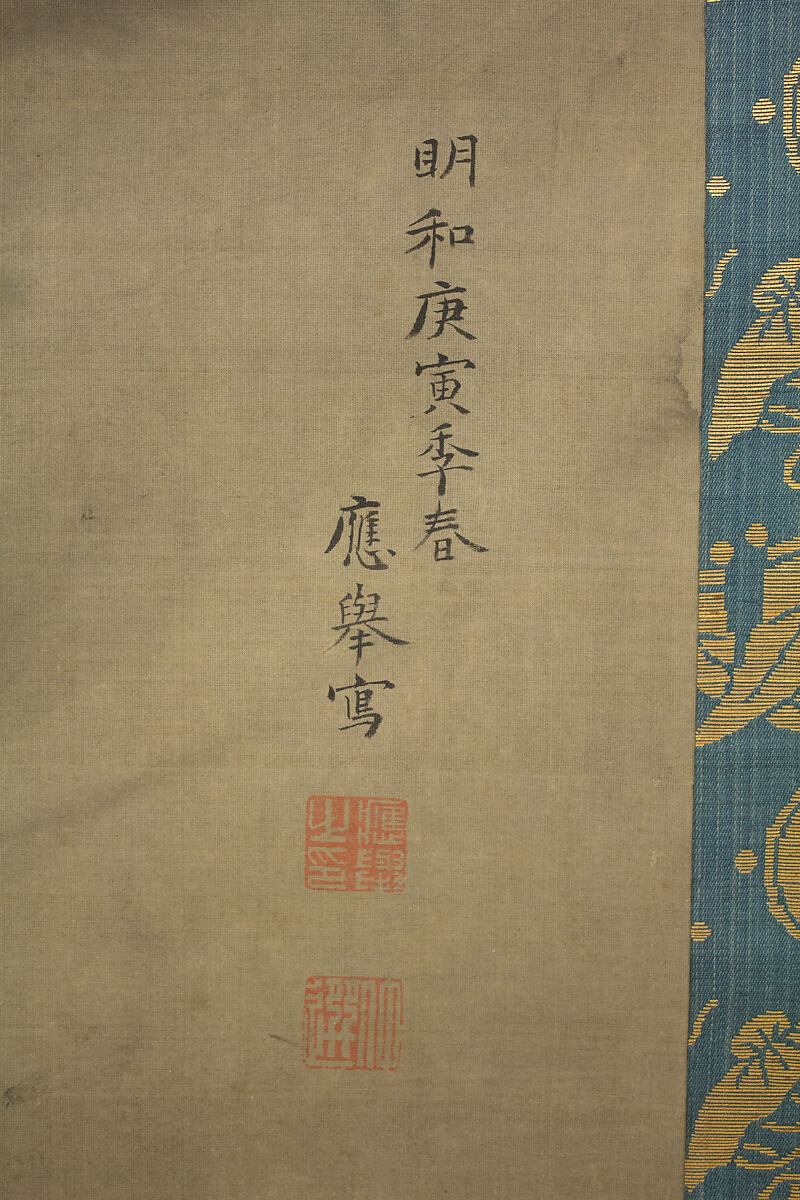 明和庚寅季春
應舉寫
應舉之印
仲選